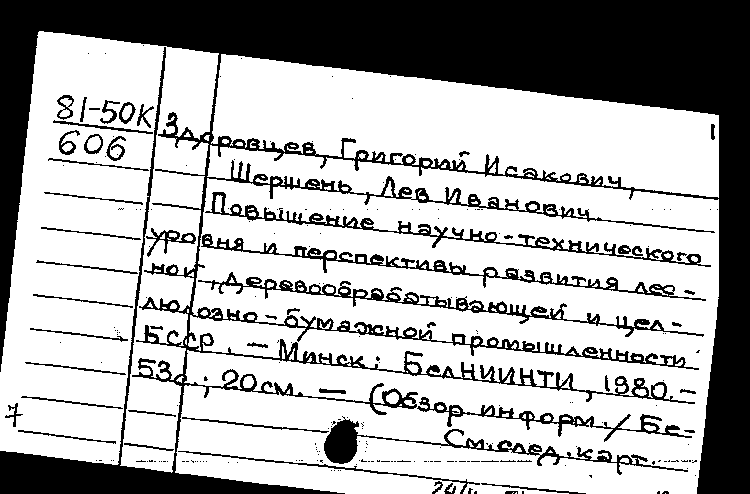 1
81-50К
606
Здоровцев, Григорий Исакович,
Шершень, Лев Иванович.
Повышение научно-технического
уровня и перспективы развития лес-
ной, деревообрабатывающей и цел-
люлозно-бумажной промышленности
БССР. — Минск: БелНИИНТИ, 1980.—
53с.; 20см. — (Обзор. информ. / Бе-
См. след. карт.
7